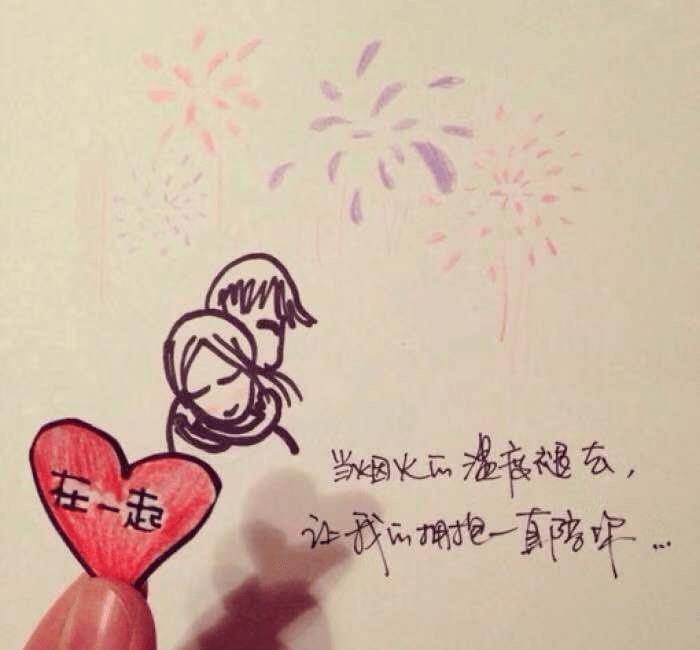 当烟火的温度褪去，
让我的拥抱一直陪你...
在一起